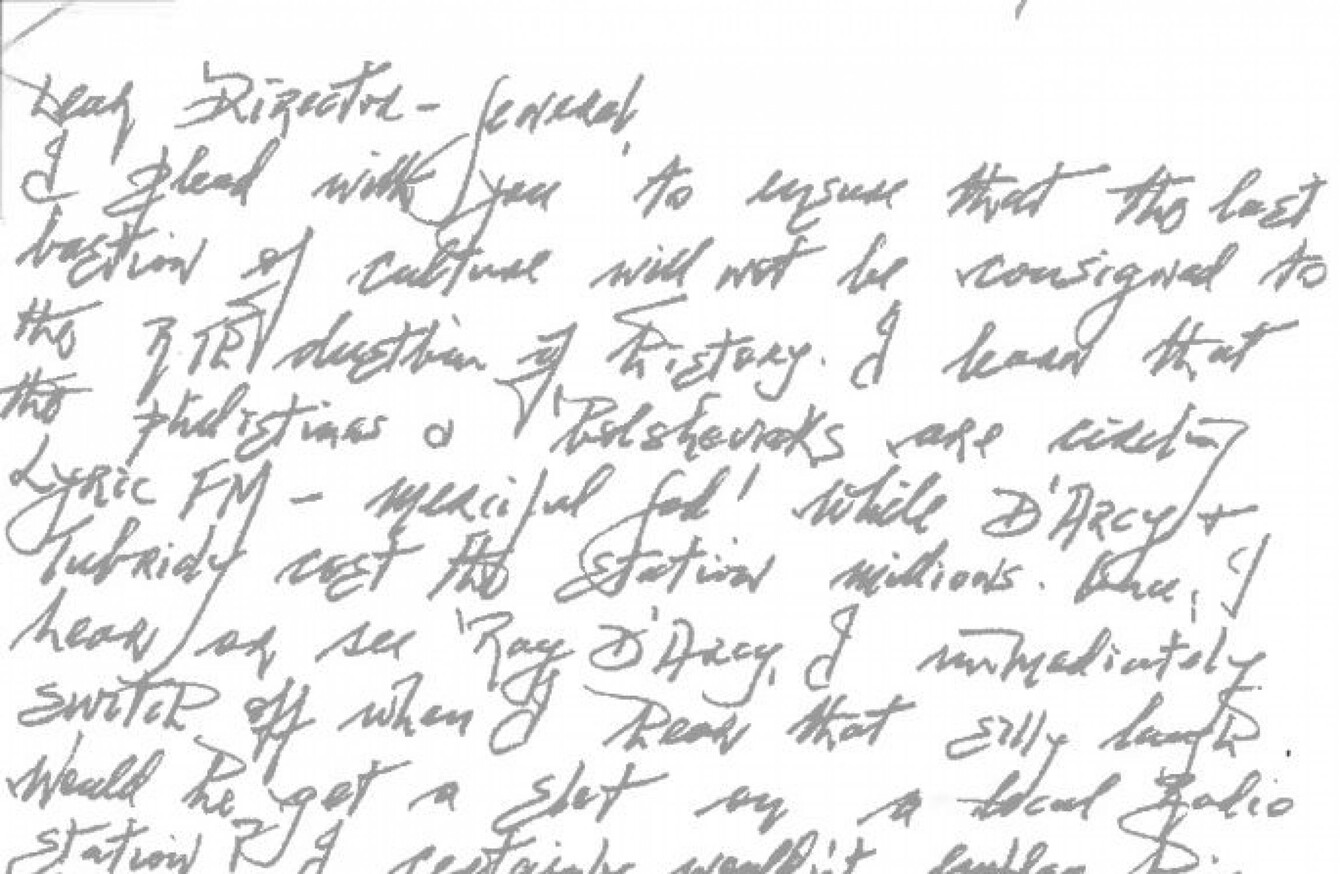 Dear Director-General,
I plead with you to ensure that the last
bastion of culture will not be consigned to
the RTE dustbin of history. I learn that
the philistines & Bolsheviks are circling
Lyric FM - merciful God! while D'Arcy +
Tubridy cost the station millions. Once, I
hear or see Ray D'Arcy, I immediately
switch off when I hear that silly laugh.
Would he get a slot on a local Radio
Station? I certainly wouldn't employ him